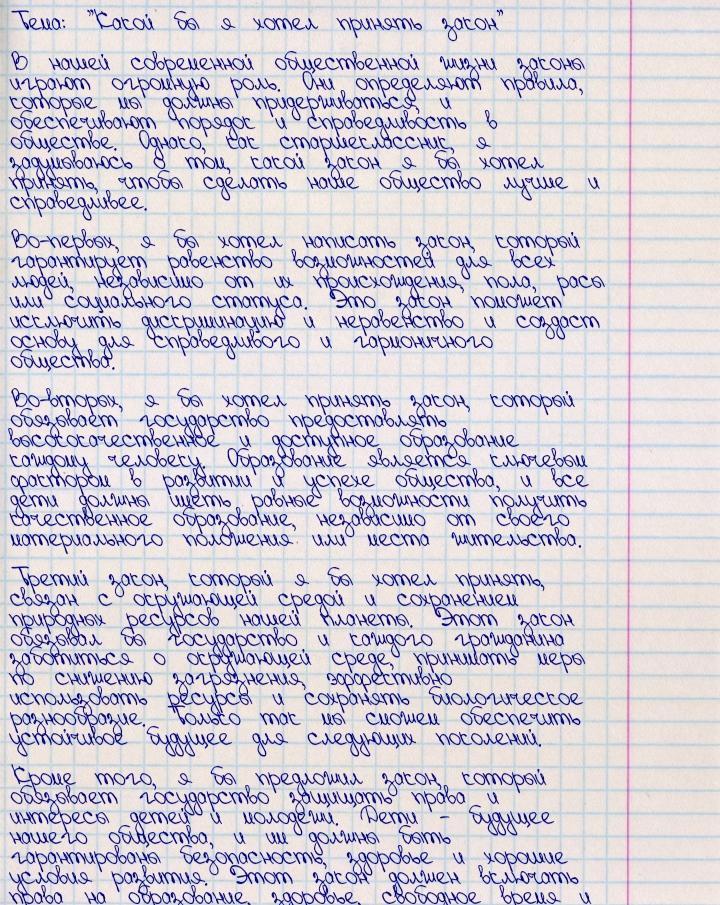 Тема: "Какой бы я хотел принять закон"
В нашей современной общественной жизни законы
играют огромную роль. Они определяют правила,
которые мы должны придерживаться, и
обеспечивают порядок и справедливость в
обществе. Однако, как старшеклассник, я
задумываюсь о том, какой закон я бы хотел
принять, чтобы сделать наше общество лучше и
справедливее.
Во-первых, я бы хотел написать закон, который
гарантирует равенство возможностей для всех
людей, независимо от их происхождения, пола, расы
или социального статуса. Это закон поможет
исключить дискриминацию и неравенство и создаст
основу для справедливого и гармоничного
общества.
Во-вторых, я бы хотел принять закон, который
обязывает государство предоставлять
высококачественное и доступное образование
каждому человеку. Образование является ключевым
фактором в развитии и успехе общества, и все
дети должны иметь равные возможности получить
качественное образование, независимо от своего
материального положения или места жительства.
Третий закон, который я бы хотел принять,
связан с окружающей средой и сохранением
природных ресурсов нашей планеты. Этот закон
обязывал бы государство и каждого гражданина
заботиться о окружающей среде, принимать меры
по снижению загрязнения, эффективно
использовать ресурсы и сохранять биологическое
разнообразие. Только так мы сможем обеспечить
устойчивое будущее для следующих поколений.
Кроме того, я бы предложил закон, который
обязывает государство защищать права и
интересы детей и молодежи. Дети - будущее
нашего общества, и им должны быть
гарантированы безопасность, здоровье и хорошие
условия развития. Этот закон должен включать
права на образование, здоровье, свободное время и